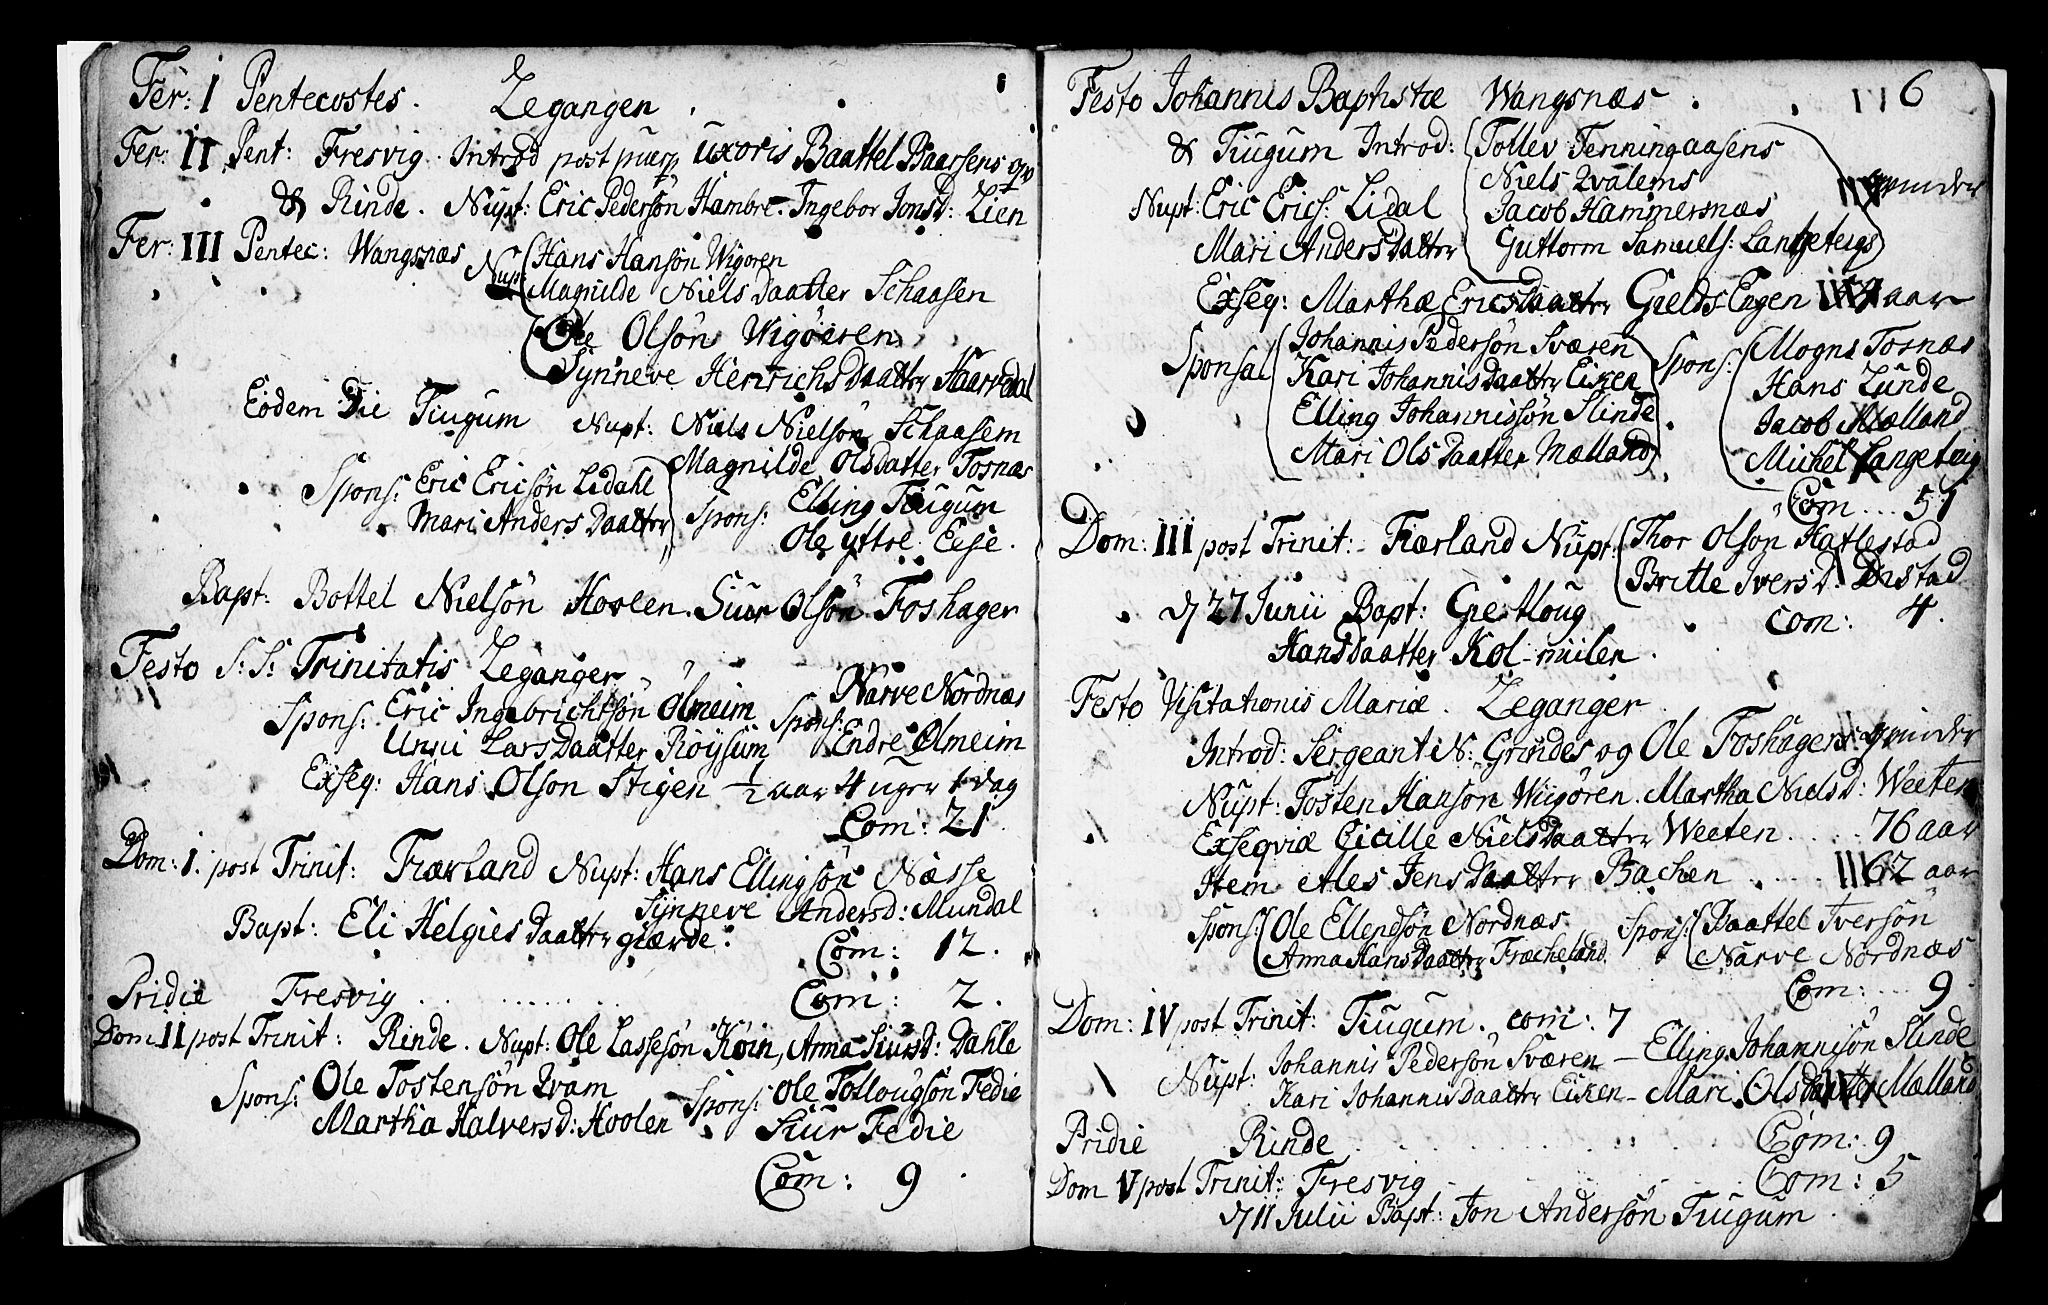 Fer: I Pentecostes. Leganger.
Fer: II Pent: Fresvig. Introd post puerp uxoris Baattel Baarsens og
& Rinde. Nupt: Eric Pedersön Hambre. Ingebor Jonsd: Lien
Fer: III Pentec: Wangsnæs Nupt: Hans Hansön Wigören
Magnilde Niels Daatter Schaasen
Ole Olsön Wigöeren
Synneve Henrichs Daatter Haarrdal
Eodem Die Tiugum Nupt: Niels Nielsön Schaasem
Magnilde Olsdatter Tosnæs
Spons: Eric Ericsön Lidahl
Mari Anders Daatter
Spons: Elling Tiugum
Ole yttre Eese.
Bapt: Bottel Nielsön Hovlen. Siur Olsön Foshager
Festo S: S: Trinitatis Leganger
Spons: Eric Ingebrichtsön Olmeim
Unni Lars Daatter Röysum
Spons: Narve Nordnæs
Endre Olmeim
Exseq: Hans Olson Stigen ½ aar 4 uger 1 dag
Com: 21.
Dom: I. post Trinit: Fiærland Nupt: Hans Ellingsön Næsse
Synneve Andersd: Mundal
Bapt: Eli Helgies Daatter giærde.
Com: 12.
Pridie Fresvig . . . . . . . Com: 2.
Dom II post Trinit: Rinde. Nupt: Ole Lassesön Hoin, Anna Siursd: Dahle
Spons: Ole Tostensön Qvam
Martha Halversd: Hoolen
Spons: Ole Tollougsön Fedie
Siur Fedie
Com: 9.
6
Festo Johannis Baptistæ Wangsnæs.
& Tiugum Introd: Tollev Fenningaasens
Niels Qvalems
Jacob Hammersnæs
Guttorm Samuels: Langeteigs
qvinder
Nupt: Eric Erics: Lidal
Mari Anders Daatter
Exseq: Marthæ Erics Daatter Gields Engen aar
Sponsal Johannis Pedersön Sværen
Kari Johannis Daatter Eiken
Elling Johannissön Slinde
Mari Ols Daatter Mælland
Spons: Mogns Tosnæs
Hans Lunde
Jacob Mælland
Michel Langeteig
Com . . . 51
Dom: III post Trinit: Fiærland Nupt: Thor Olsön Hatlestad
Britte Iversd: Distad
d 27 Junii Bapt: Giertloug
Hans Daatter Kol-miilen.
Com: 4.
Festo Visitationis Mariæ. Leganger
Introd: Sergeant N: Grindes og Ole Foshagens qvinder
Nupt: Tosten Hansön Wiigören. Martha Nielsd: Weeten
Exseqviæ Cicille Niels Daatter Weeten . . . . 76 aar
Item Ales Jens Daatter Bachen . . . . 62 aar
Spons: Ole Ellendsön Nordnæs.
Anna Hans Daatter Frœcheland
Spons: Baattel Iversön
Narve Nordnæs
Com: . . . 9
Dom: IV post Trinit: Tiugum. com: 7
Nupt: Johannis Pedersön Sværen – Elling Johannisön Slinde
Kari Johannis Daatter Eiken – Mari Ols Daatter Mælland
Pridie Rinde . . . . . . . Com: 9
Dom V post Trinit: Fresvig . . . Com: 5
d 11 Julii Bapt: Jon Andersön Tiugum.